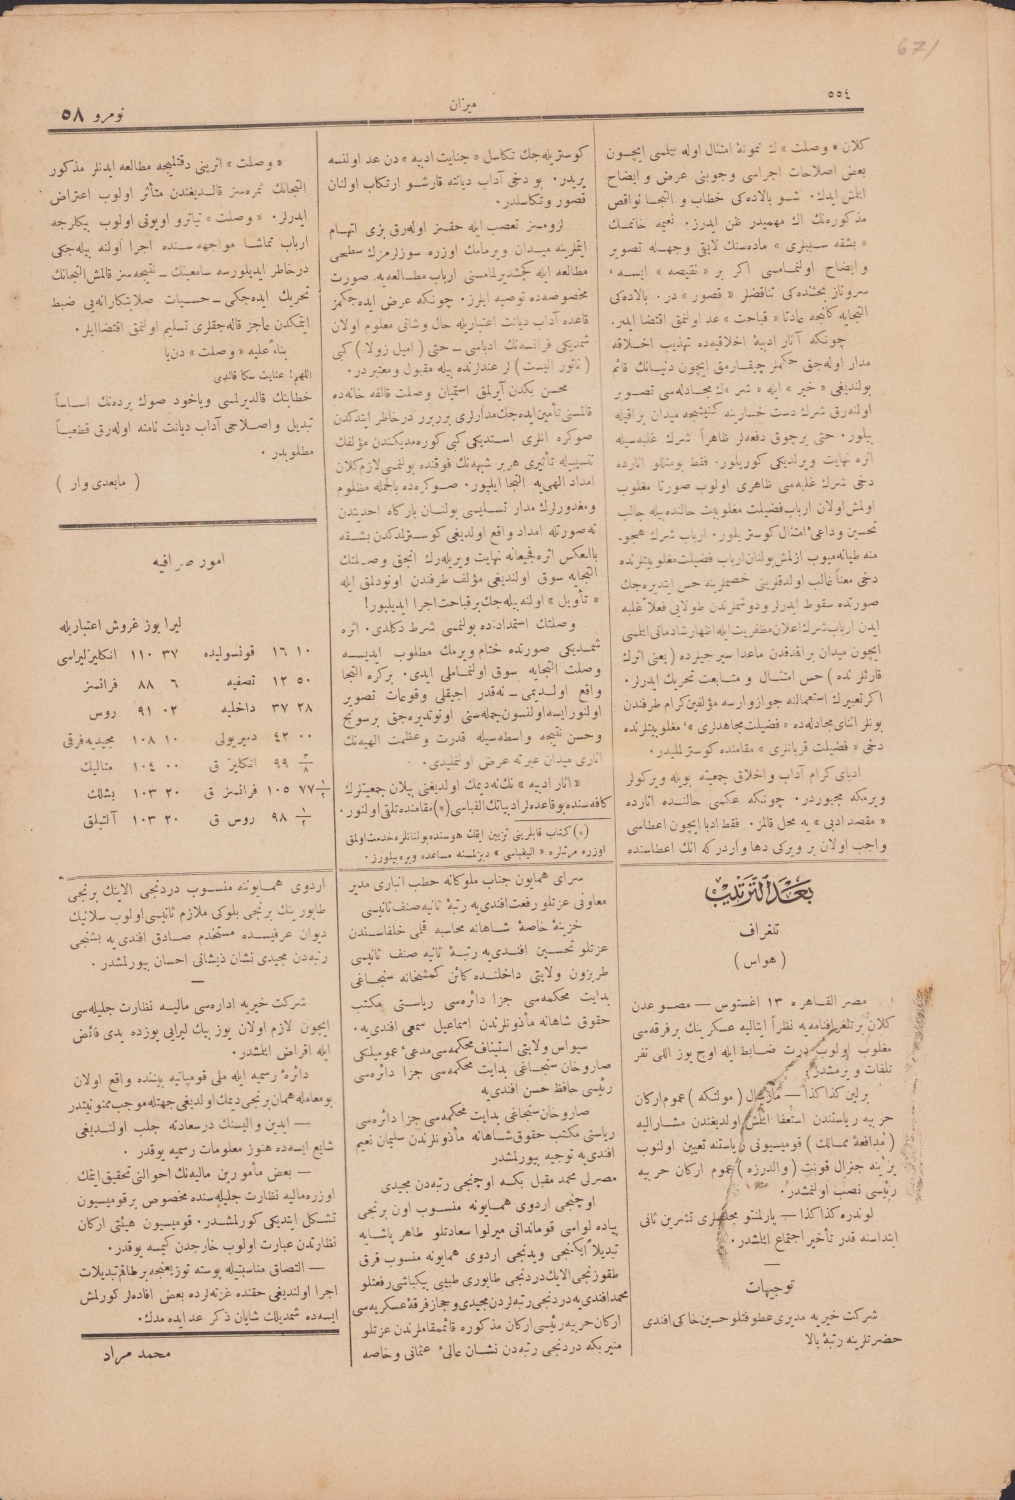 671
٥٥٤
ميزان
نومرو ٥٨
كلان « وصلت » ك نمونهٔ امتثال اوله بيلمسى ايچون
بعض اصلاحات اجراسى وجوبنى عرض و ايضاح
ايتمش ايدك. شو بالاده كى خطاب و التجا نواقص
مذكوره نك اك مهميدر ظن ايدرز. نعيمه خانمك
« بشقه سببلرى » ماده سنك لايق وجهله تصوير
و ايضاح اولنمامسى اكر بر « نقيصه » ايسه،
سروناز بحثنده كى تناقضلر « قصور » در. بالاده كى
التجايه كلنجه عادتا « قباحت » عد اولنمق اقتضا ايدر.
چونكه آثار ادبيهٔ اخلاقيه ده تهذيب اخلاقه
مدار اوله جق حكملر چيقارمق ايچون دنيانك قائم
بولنديغى « خير » ايله « شر » ك مجادله سى تصوير
اولنه رق شرك دست خسارينه كنيشجه ميدان براقيله
بيلور. حتى برچوق دفعه لر ظاهراً شرك غلبه سيله
اثره نهايت ويرلديكى كوريلور. فقط بومثللو اثارده
دخى شرك غلبه سى ظاهرى اولوب صورتا مغلوب
اولمش اولان ارباب فضيلت مغلوبيت حالنده بيله جالب
تحسين وداعئ امتثال كوستر يلور. ارباب شرك هجو
منه طيانه ميوب ازلمش بولنان ارباب فضيلت مغلوبيتلرنده
دخى معناً غالب اولدقلرينى خصملرينه حس ايتديره جك
صورتده سقوط ايدرلر ودوشملرندن طولايى فعلاً غلبه
ايدن ارباب شرك اعلان مظفريت ايله اظهار شادمانى ايتمسى
ايچون ميدان براقدقدن ماعدا سيرجيلرده ( يعنى اثرك
قارئلرنده ) حس امتثال و متابعت تحريك ايدرلر.
اكر تعبيرك استعمالنه جواز وارسه مؤلفين كرام طرفندن
بونلر اثناى مجادله ده « فضيلت مجاهدلرى »، مغلوبيتلرنده
دخى « فضيلت قربانلرى » مقامنده كوسترلمليدر.
ادباى كرام آداب و اخلاق جمعيته بويله ويركولر
ويرمكه مجبوردر. چونكه عكسى حالنده اثارده
« مقصد ادبى » يه محل قالمز. فقط ادبا ايچون اعطاسى
واجب اولان بر ويركى دها واردر كه انك اعطاسنده
كوستريله جك تكاسل « جنايت ادبيه » دن عد اولنسه
يريدر. بو دخى آداب ديانته قارشو ارتكاب اولنان
قصور و تكاسلدر.
لزومسز تعصب ايله حقمز اوله رق بزى اتهام
ايتلرينه ميدان ويرمامك اوزره سوزلرمزك سطحى
مطالعه ايله كچشديرلمامسنى ارباب مطالعه يه صورت
مخصوصه ده توصيه ايلرز. چونكه عرض ايده جكمز
قاعده آداب ديانت اعتباريله حال وشانى معلوم اولان
شمديكى فرانسه نك ادباسى ــ حتى ( اميل زولا ) كبى
( ناتور اليست ) لر عندلرنده بيله مقبول ومعتبر در.
محسن بكدن آيرلمق استميان وصلت قالفه خانه ده
قالمسنى تأمين ايده جك مدارلرى بررر در خاطر ايتدكدن
صوكره انلرى استديكى كبى كوره مديكندن مؤلفك
تنسيبيله تأثيرى هر بر شبهه نك فوقنده بولنمسى لازم كلان
امداد الهى يه التجا ايليور. صوكره ده بالجمله مظلوم
و مغدورلرك مدار تسليسى بولنان باركاه احديتدن
نه صورتله امداد واقع اولديغى كوسترلدكدن بشقه
بالعكس اثره فجيعانه نهايت ويريله رك انجق وصلتك
التجايه سوق اولنديغى مؤلف طرفندن اونودلمق ايله
« تأويل » اولنه بيله جك بر قباحت اجرا ايديليور!
وصلتك استمداده بولنمسى شرط دكلدى. اثره
شمديكى صورتده ختام ويرمك مطلوب ايديسه
وصلت التجايه سوق اولنماملى ايدى. بركره التجا
واقع اولديمى ــ نه قدر اجيقلى وقوعات تصوير
اولنورايسه اولنسون جمله سنى اونوتديره جق برسونج
وحسن نتيجه واسطه سيله قدرت و عظمت الهيه نك
اثارى ميدان عبرته عرض اولنمليدى.
« اثار ادبيه » نك نه ديمك اولديغنى بيلان جمعيتلرك
كافه سنده بو قاعده لر ادبياتك الفباسى (*) مقامنده تلقى اولنور.
(*) كتاب قابلرينى تزيين ايتمك هوسنده بولنانلره خدمت اولمق
اوزره مرتبلره « اليفباسى » ديزلمسنه مساعده ويره بيلورز.
« وصلت » اثرينى دقتليجه مطالعه ايدنلر مذكور
التجانك ثمره سز قالديغندن متأثر اولوب اعتراض
ايدرلر. « وصلت » تياترو اويونى اولوب بيكلرجه
ارباب تماشا مواجهه سنده اجرا اولنه بيله جكى
درخاطر ايديلورسه سامعينك ــ نتيجه سز قالمش التجانك
تحريك ايده جكى ــ حسيات صلابتكارانه يى ضبط
ايتمكدن عاجز قاله جقلرى تسليم اولنمق اقتضا ايلر.
بناءً عليه « وصلت » دن يا
اللهم! عنايت سكا قالدى
خطابنك قالديرلمسى وياخود صوك پرده نك اساساً
تبديل و اصلاحى آداب ديانت نامنه اوله رق قطعياً
مطلوبدر.
( مابعدى وار )
امور صرافيه
ليرا يوز غروش اعتباريله
١٠ ١٦ قونسوليده ٣٧ ١١٠ انكليز ليراسى
٥٠ ١٢ تصفيه ٦ ٨٨ فرانسز
٢٨ ٣٧ داخليه ٠٢ ٩١ روس
٠٠ ٤٢ دميريولى ١٠ ١٠٨ مجيديه فرقى
٩٩ انكليز ق ٠٠ ١٠٤ متاليك
٧٧½ ١٠٥ فرانسز ق ٢٠ ١٠٣ بشلك
½ ٩٨ روس ق ٢٠ ١٠٣ آلتيلق
بعد الترتيب
تلغراف
( هواس )
مصر القاهره ١٣ اغستوس ــ مصوعدن
كلان بر تلغرافنامه يه نظراً ايتاليه عسكرينك بر فرقه سى
مغلوب اولوب درت ضابط ايله اوچ يوز اللى نفر
تلفات ويرمشدر.
برلين كذا كذا ــ مارشال ( مولتكه ) عموم اركان
حربيه رياستندن استعفا ايتمش اولديغندن مشار اليه
( مدافعهٔ ممالك ) قوميسيونى رياستنه تعيين اولنوب
يرينه جنرال قونت ( والدرزه ) عموم اركان حربيه
رئيسى نصب اولنمشدر.
لوندره كذا كذا ــ پارلمنتو مجلسلرى تشرين ثانى
ابتداسنه قدر تأخير اجتماع ائلشدر.
توجيهات
شركت خيريه مديرى عطوفتلو حسين حاكى افندى
حضرتلرينه رتبهٔ بالا
سراى همايون جناب ملوكانه حطب انبارى مدير
معاونى عزتلو رفعت افندى يه رتبهٔ ثانيه صنف ثانيسى
خزينهٔ خاصهٔ شاهانه محاسبه قلمى خلفاسندن
عزتلو تحسين افندى يه رتبهٔ ثانيه صنف ثانيسى
طربزون ولايتى داخلنده كائن كمشخانه سنجاغى
بدايت محكمه سى جزا دائره سى رياستى مكتب
حقوق شاهانه مأذونلرندن اسماعيل سمعى افندى يه.
سيواس ولايتى استيناف محكمه سى مدعئ عموميلكى
صاروخان سنجاغى بدايت محكمه سى جزا دائره سى
رئيسى حافظ حسن افندى يه
صاروخان سنجاغى بدايت محكمه سى جزا دائره سى
رياستى مكتب حقوق شاهانه مأذونلرندن سليمان نعيم
افندى يه توجيه بيورلمشدر
مصرلى محمد مقبل بكه اوچنجى رتبه دن مجيدى
اوچنجى اردوى همايونه منسوب اون برنجى
پياده لواسى قوماندانى ميرلوا سعادتلو طاهر پاشايه
تبديلاً ايكنجى ويدنجى اردوى همايونه منسوب فرق
طقوزنجى الايك دردنجى طابورى طبيبى بيكباشى رفعتلو
محمد افندى يه دردنجى رتبه لردن مجيدى وحجاز فرقهٔ عسكريه سى
اركان حربيه رئيسى اركان مذكوره قائممقاملرندن عزتلو
منير بكه دردنجى رتبه دن نشان عالئ عثمانى وخاصه
اردوى همايوننه منسوب دردنجى الاينك برنجى
طابورينك برنجى بلوكى ملازم ثانيسى اولوب سلانيك
ديوان عرفيسنده مستخدم صادق افندى يه بشنجى
رتبه دن مجيدى نشان ذيشانى احسان بيورلمشدر.
شركت خيريه اداره سى ماليه نظارت جليله سى
ايچون لازم اولان يوز بيك ليرايى يوزده يدى فائض
ايله اقراض ايتمشدر.
دائرهٔ رسميه ايله ملى قومپانيه بيننده واقع اولان
بومعامله همان برنجى ديمك اولديغى جهتله موجب ممنونيتدر
ــ ايدين واليسنك درسعادته جلب اولنديغى
شايع ايسه ده هنوز معلومات رسميه يوقدر.
ــ بعض مأمورين ماليه نك احوالنى تحقيق ايتمك
اوزره ماليه نظارت جليله سنده مخصوص بر قوميسيون
تشكل ايتديكى كورلمشدر. قوميسيون هيئتى اركان
نظارتدن عبارت اولوب خارجدن كيمسه يوقدر.
ــ التصاق مناسبتيله پوسته توزيعنجه بر طاقم تبديلات
اجرا اولنديغى حقنده غزته لرده بعض افاده لر كورلمش
ايسه ده شمديلك شايان ذكر عد ايده مدك.
محمد مراد